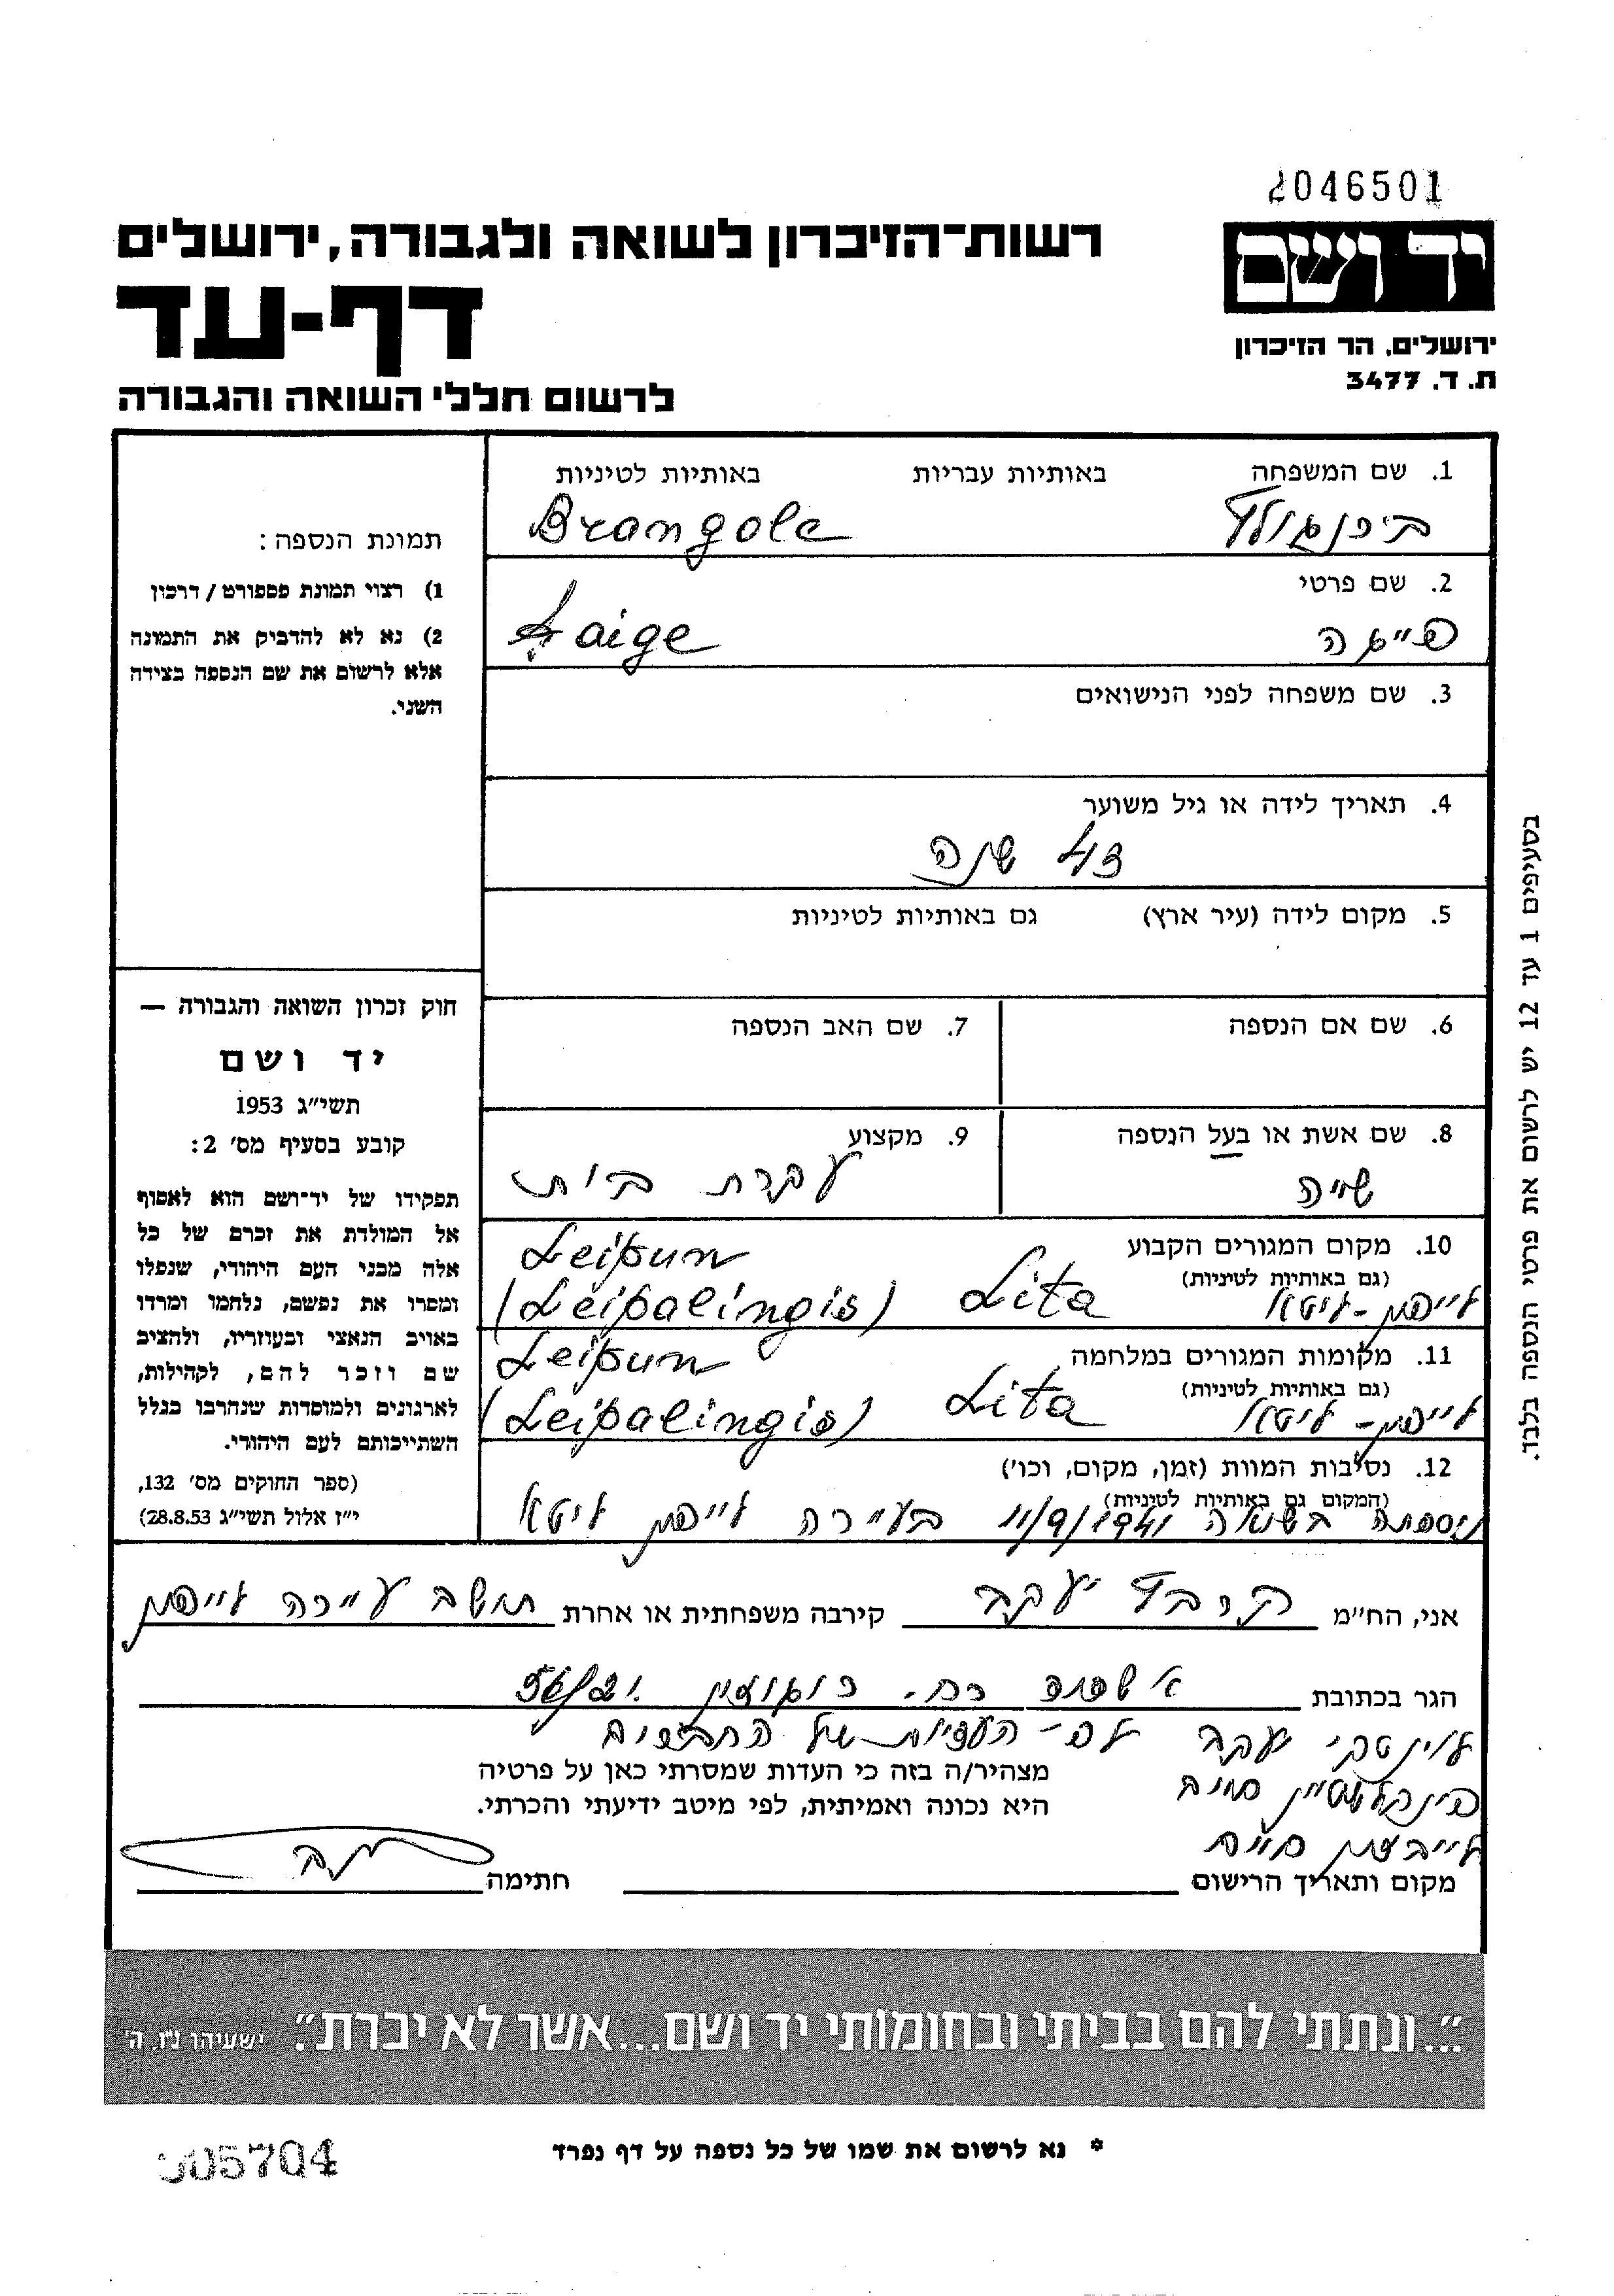 2046501
יד ושם
רשות־הזיכרון לשואה ולגבורה, ירושלים
דף-עד
ירושלים, הר הזיכרון
ת. ד. 3477
לרשום חללי השואה והגבורה
1. שם המשפחה באותיות עבריות באותיות לטיניות
Brangole
2. שם פרטי
פייגה Faige
3. שם משפחה לפני הנישואים
4. תאריך לידה או גיל משוער
43 שנה
5. מקום לידה (עיר ארץ) גם באותיות לטיניות
6. שם אם הנספה 7. שם האב הנספה
8. שם אשת או בעל הנספה 9. מקצוע
שייה עקרת בית
10. מקום המגורים הקבוע Leipun
(גם באותיות לטיניות)
לייפון - ליטא Lita (Leipalingis)
11. מקומות המגורים במלחמה Leipun
(גם באותיות לטיניות)
לייפון - ליטא Lita (Leipalingis)
12. נסיבות המוות (זמן, מקום, וכו')
(המקום גם באותיות לטיניות)
נספתה בשואה 11/9/1941 בעיירה לייפון ליטא
תמונת הנספה:
1) רצוי תמונת פספורט / דרכון
2) נא לא להדביק את התמונה
אלא לרשום את שם הנספה בצידה
השני.
חוק זכרון השואה והגבורה —
יד ושם
תשי"ג 1953
קובע בסעיף מס' 2:
תפקידו של יד־ושם הוא לאסוף
אל המולדת את זכרם של כל
אלה מבני העם היהודי, שנפלו
ומסרו את נפשם, נלחמו ומרדו
באויב הנאצי ובעוזריו, ולהציב
שם וזכר להם, לקהילות,
לארגונים ולמוסדות שנחרבו בגלל
השתייכותם לעם היהודי.
(ספר החוקים מס' 132,
י"ז אלול תשי"ג 28.8.53)
בסעיפים 1 עד 12 יש לרשום את פרטי הנספה בלבד.
אני, הח"מ יעקב קירבה משפחתית או אחרת תושב עיירה לייפון
הגר בכתובת אשדוד רח.
יעקב של החברים
מצהיר/ה בזה כי העדות שמסרתי כאן על פרטיה
פינקלשטיין חיים
היא נכונה ואמיתית, לפי מיטב ידיעתי והכרתי.
חיים
מקום ותאריך הרישום חתימה
"...ונתתי להם בביתי ובחומותי יד ושם...אשר לא יכרת". ישעיהו נו, ה'
* נא לרשום את שמו של כל נספה על דף נפרד